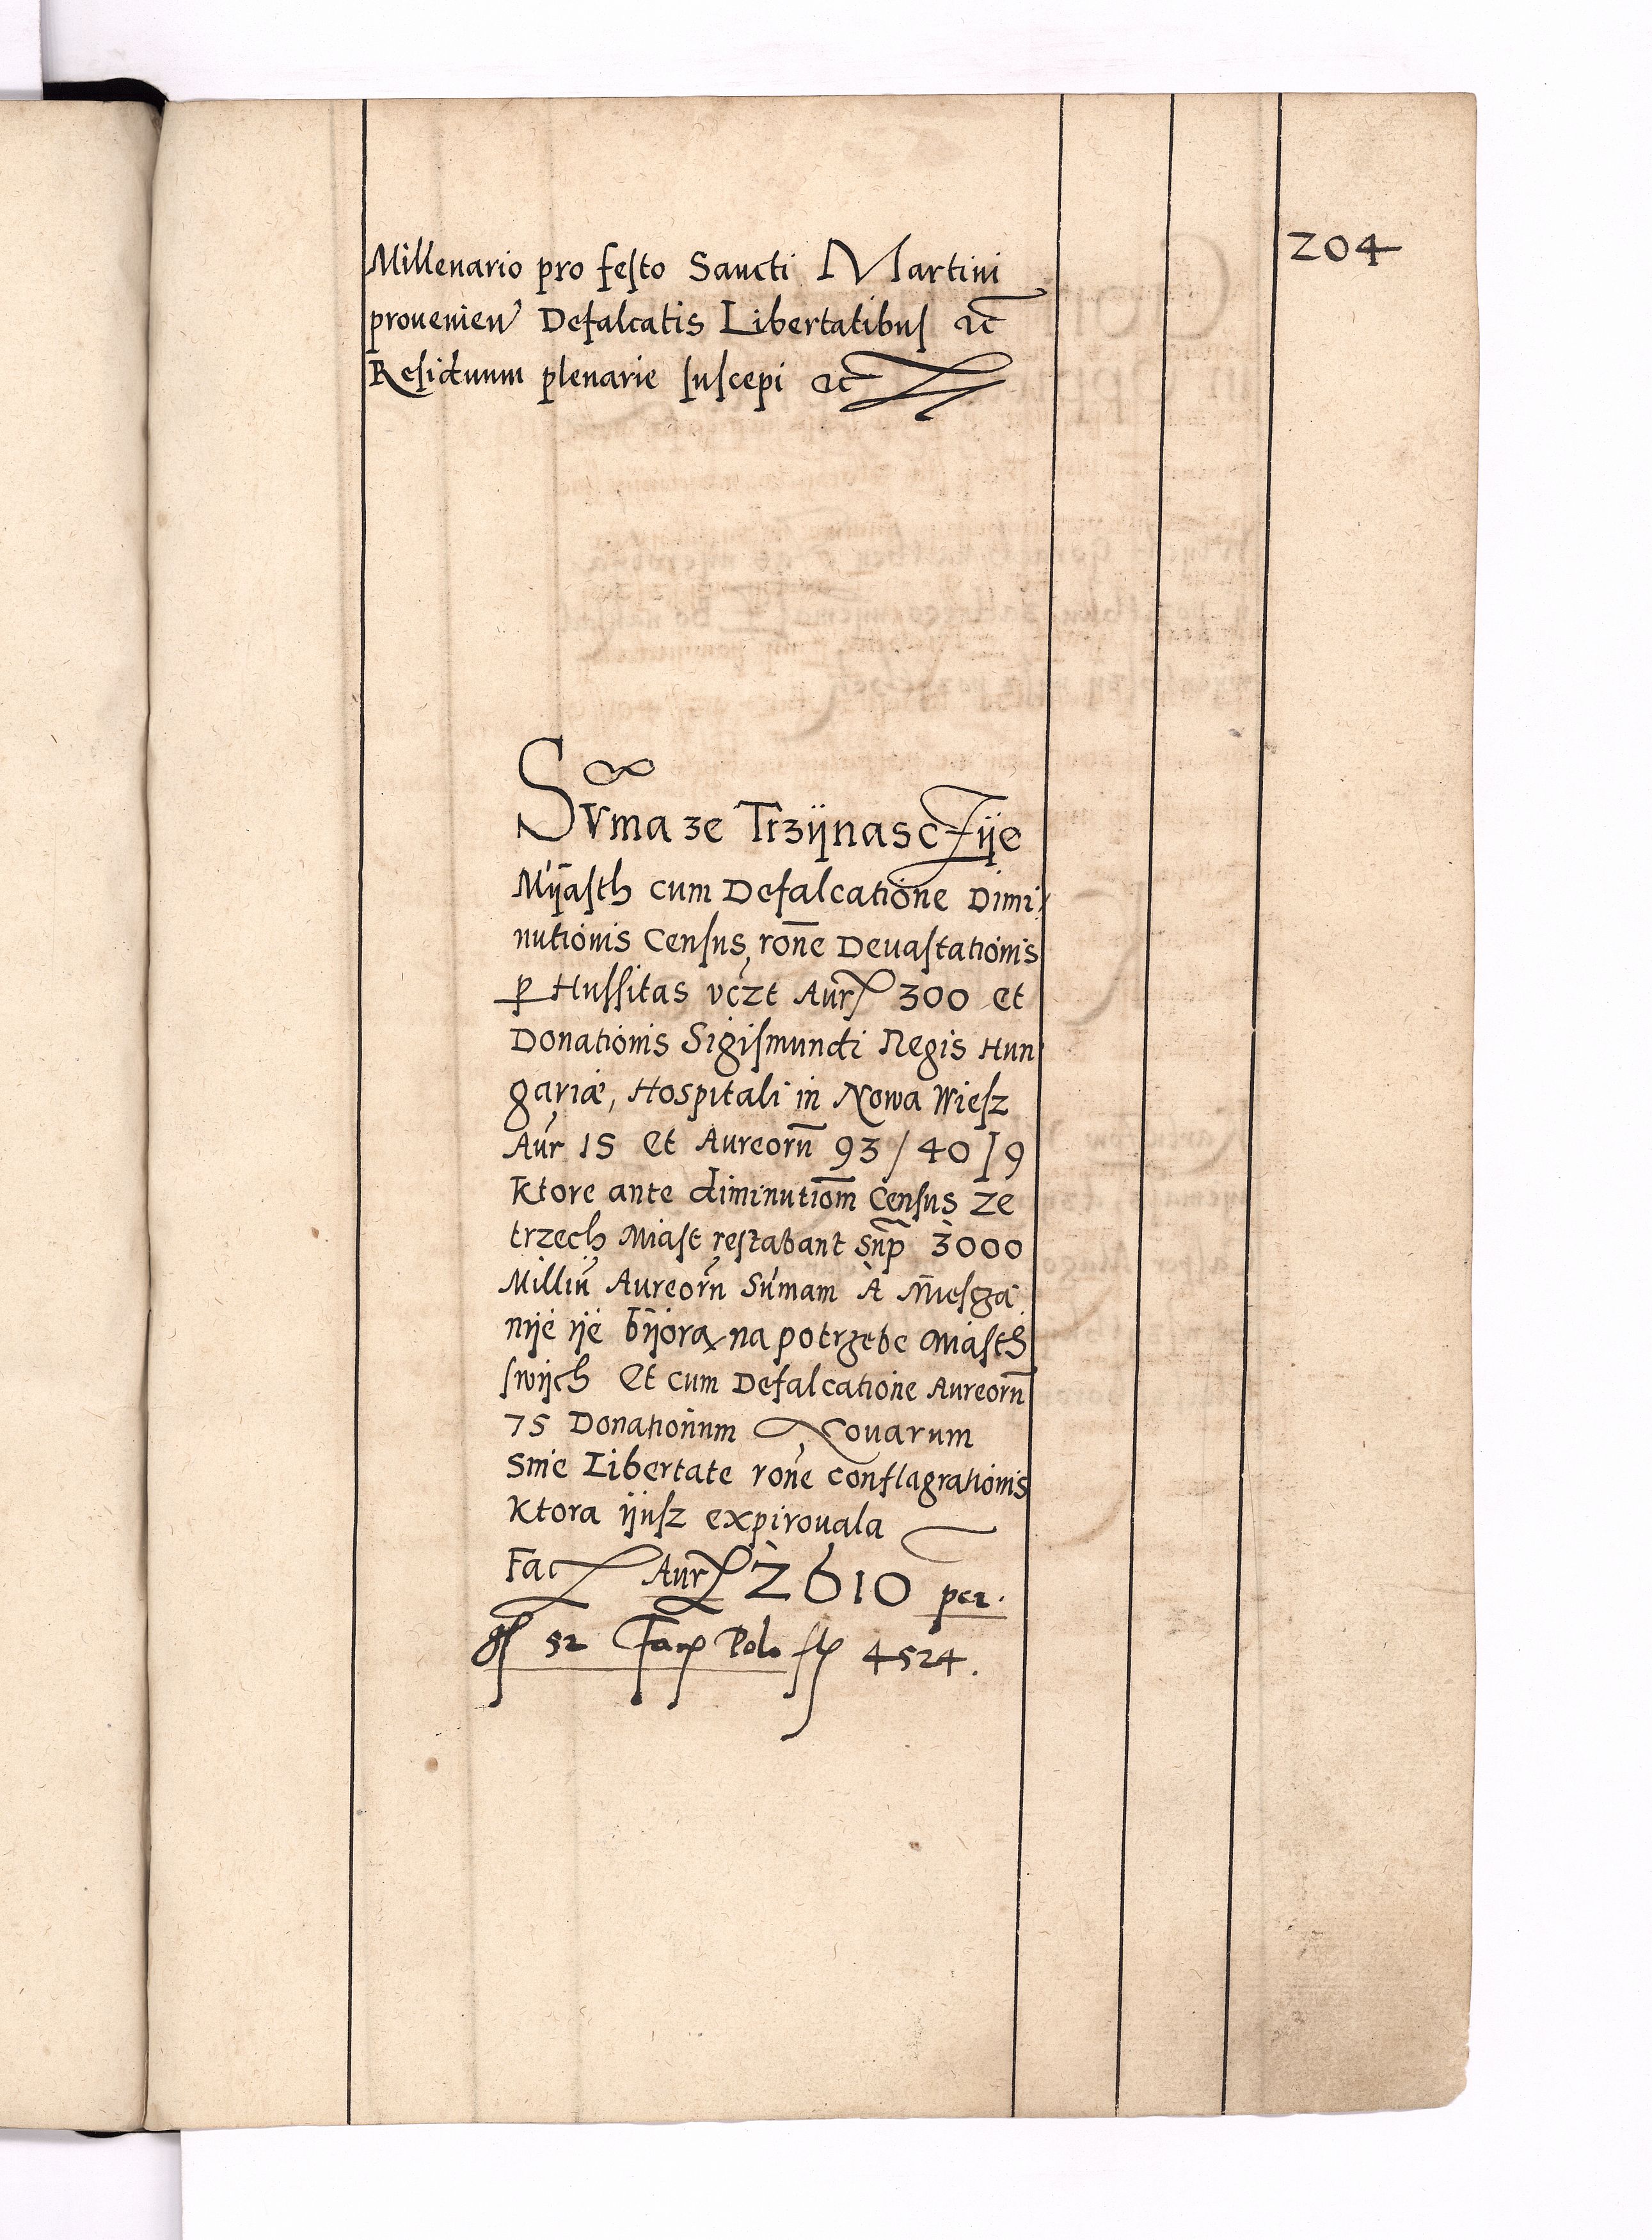 204
Millenario pro festo Sancti Martini
prouenien Defalcatis Libertatibus etc
Residuum plenarie suscepi etc
Sũma ze Trzijnasczije
Mijasth cum Defalcatione Dimi
nutionis Census, rõne Deuastationis
p Hussitas vczt Aur 300 et
Donationis Sigismundi Regis Hun
gariæ, Hospitali in Nowa Wiesz
Aur 15 et Aureorũ 93 / 40 / 9
Ktore ante diminutiom̃ Census ze
trzech Miast restabant sup̃ 3000
Milliũ Aureorũ Sũmam A Miesza
nije ije bijora na potrzebe Miasth
swijch et cum Defalcatione Aureorũ
75 Donationum Nouarum
Sine Libertate rõne conflagrationis
Ktora ijusz expirouala
Fac Aur 2610 per
gs 52 Facis Polo fl 4524.